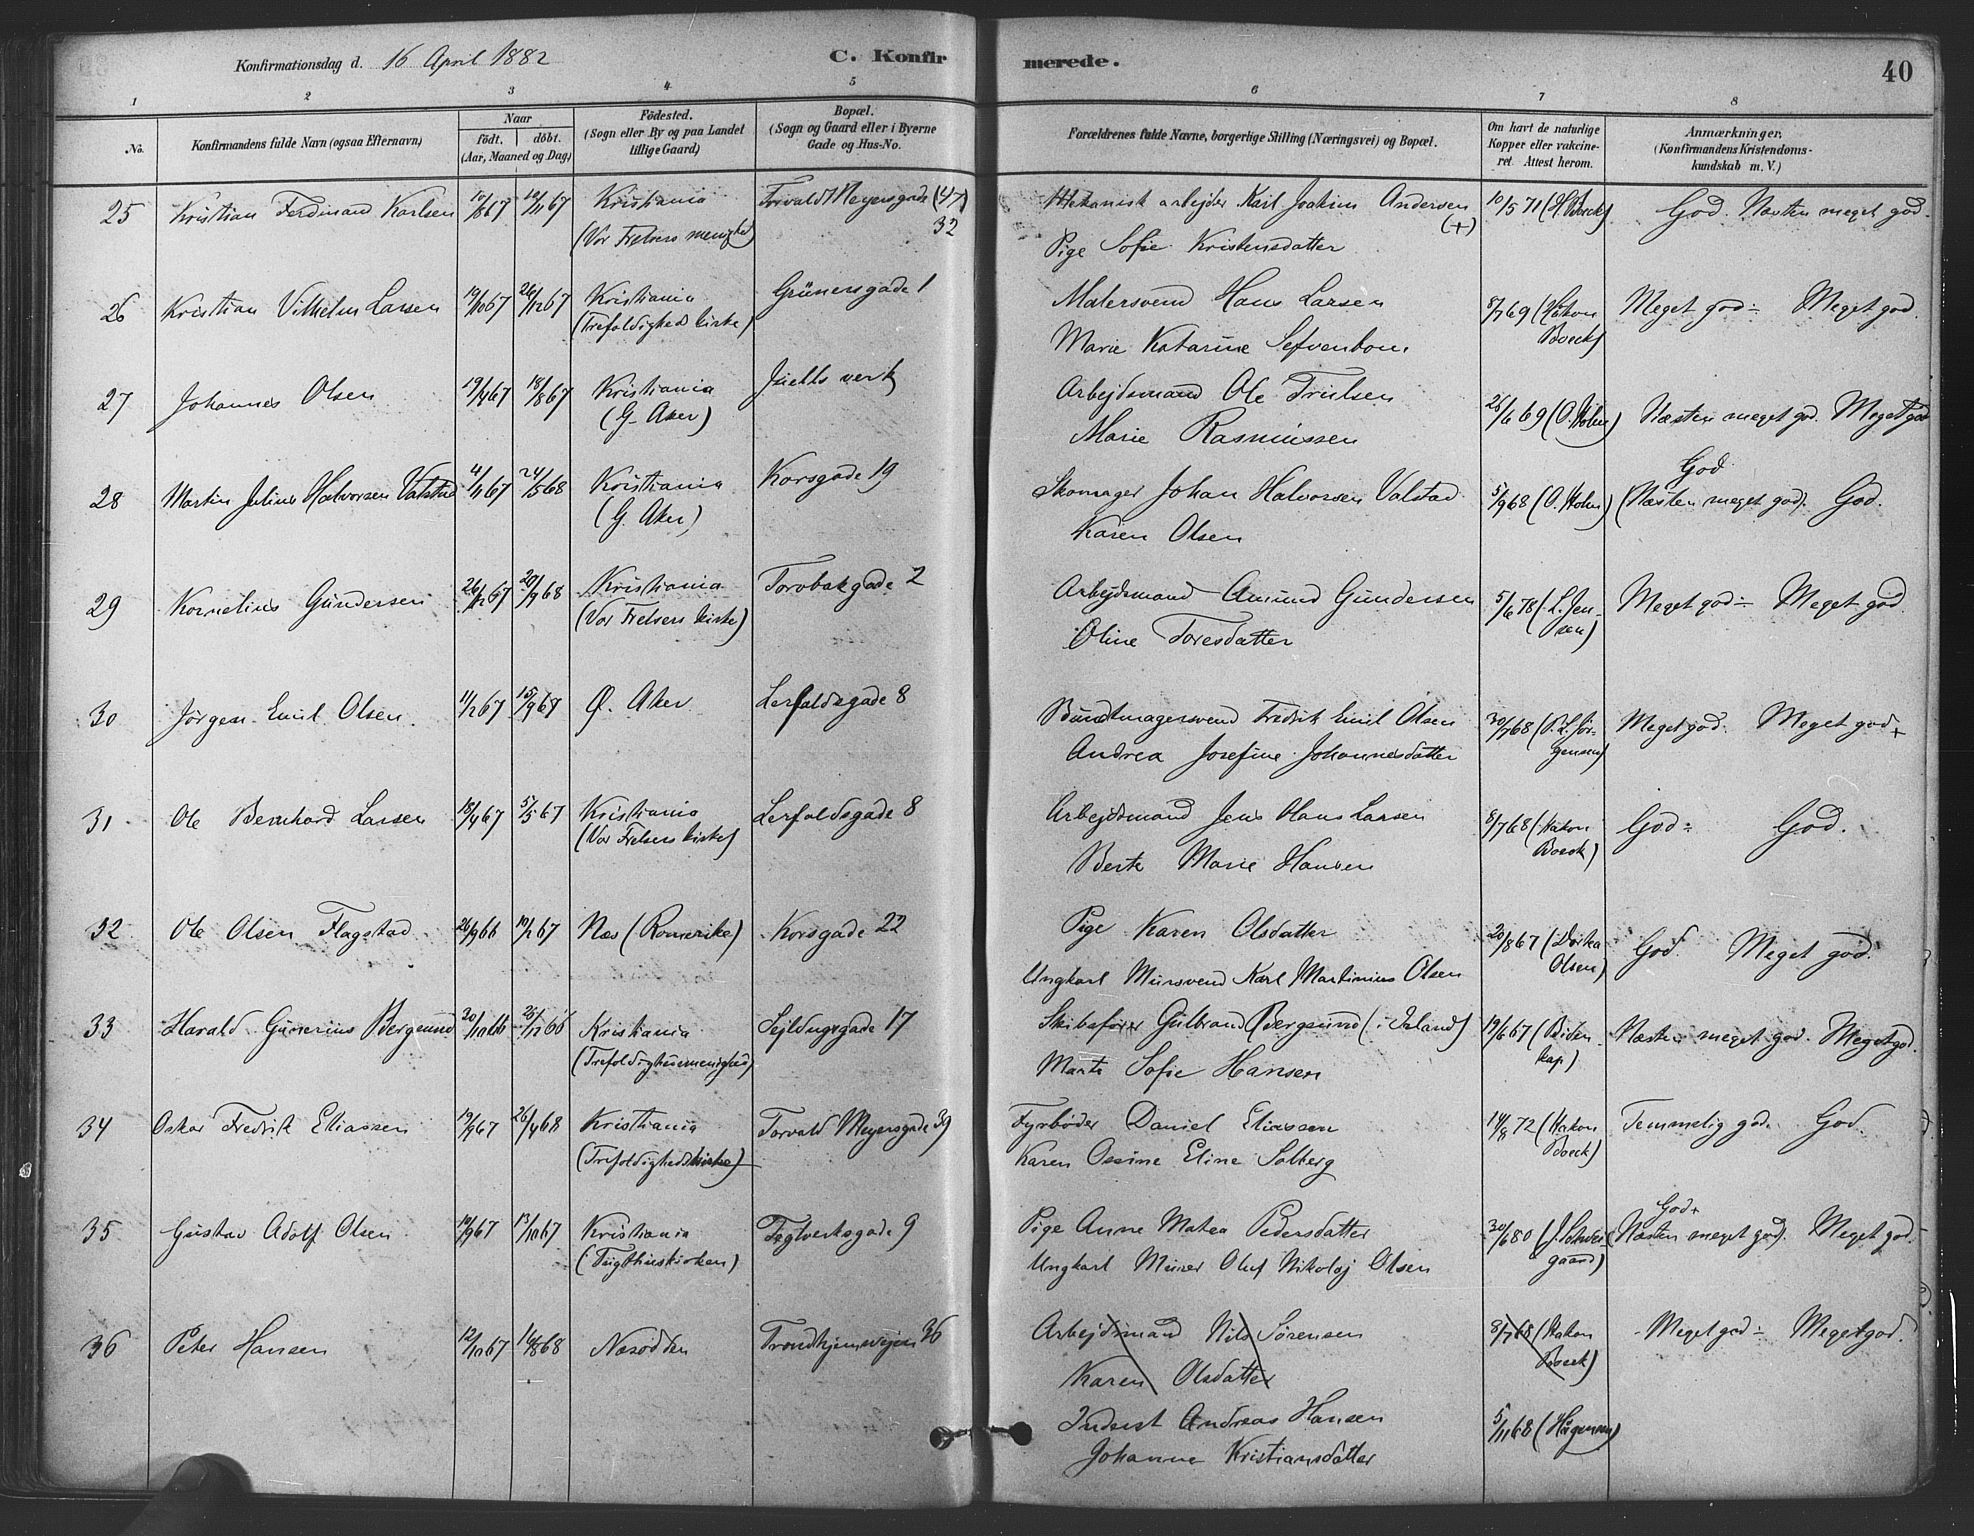 Konfirmationsdag d. 16 April 1882 C. Konfirmerede. 40
1 2 3 4 5 6 7 8
No.
Konfirmandens fulde Navn (ogsaa Efternavn)
Naar
født. døbt.
(Aar, Maaned og Dag)
Fødested.
(Sogn eller By og paa Landet
tillige Gaard)
Bopæl.
(Sogn og Gaard eller i Byerne
Gade og Hus-No.
Forældrenes fulde Navne, borgerlige Stilling (Næringsvei) og Bopæl.
Om havt de naturlige
Kopper eller vakcine-
ret. Attest herom.
Anmærkninger.
(Konfirmandens Kristendoms-
kundskab m. V.)
25 Kristian Ferdinand Karlsen 10/8 67 10/11 67 Kristiania Torvald Meyersgade (47) Mekanisk arbejder Karl Joakim Andersen 10/5 71 (H. Boeck) God. Næsten meget god.
(Vor Frelsers menighed) 32 (+)
Pige Sofie Kristensdatter
26 Kristian Vilhelm Larsen 19/10 67 26/12 67 Kristiania Grünersgade 1 Malersvend Hans Larsen 8/7 69 (Hakon Meget god ÷ Meget god.
(Trefoldigheds kirke) Boeck)
Marie Katarine
27 Johannes Olsen 19/4 67 18/8 67 Kristiania verk Arbejdsmand Ole 26/6 69 (O. Holm) Næsten meget god. Meget god
(G. Aker) Marie Rasmussen
28 Martin Julius Halvorsen Valstad 4/11 67 24/5 68 Kristiania Korsgade 19 Skomager Johan Halvorsen Valstad 5/9 68 (O. Holm) God
(G. Aker) (Næsten meget god). God.
Karen Olsen
29 Kornelius Gundersen 26/12 67 20/9 68 Kristiania Torvbakgade 2 Arbejdsmand Amund Gundersen 5/6 78 (L. Jen- Meget god ÷ Meget god.
(Vor Frelsers kirke) sen)
Oline Toresdatter
30 Jørgen Emil Olsen. 11/2 67 15/9 67 Ø. Aker Lerfaldsgade 8 Buntmagersvend Fredrik Emil Olsen 30/7 68 (P. L. Jør- Meget god. Meget god +
gensen)
Andrea Josefine Johannesdatter
31 Ole Bernhard Larsen 18/4 67 5/5 67 Kristiania Lerfaldsgade 8 Arbejdsmand Jens Hans Larsen 8/7 68 (Hakon God ÷ God.
(Vor Frelsers kirke) Boeck)
Berte Marie Hansen
32 Ole Olsen Flagstad 26/9 66 10/2 67 Næs (Romerike) Korsgade 22 Pige Karen Olsdatter 20/8 67 (Dorka God. Meget god.
Olsen)
Ungkarl Mursvend Karl Martinius Olsen
33 Harald Gunerius Bergsund 20/10 66 25/12 66 Kristiania Sejldugsgade 17 Skibsfører Gulbrand Bergsund (i Irland) 19/6 67 (Biden- Næsten meget god. Meget god.
(Trefoldighedsmenighed) kap)
Marte Sofie Hansen
34 Oskar Fredrik Eliassen 19/9 67 26/4 68 Kristiania Torvald Meyersgade 39 Fyrbøder Daniel Eliassen 14/8 72 (Hakon Temmelig god. God.
(Trefoldighedskirke) Boeck)
Karen Ossine Eline Solberg
35 Gustav Adolf Olsen 10/9 67 13/10 67 Kristiania Teglverksgade 9 Pige Anne Matea Pedersdatter 30/6 80 (J. Schwei- God+
(Tugthuskirken) gaard) (Næsten meget god). Meget god.
Ungkarl Murer Oluf Nikolaj Olsen
36 Peter Hansen 12/10 67 16/8 68 Næsodden Trondhjemsvejen 36 Arbejdsmand Nils Sørensen 8/7 68 (Hakon Meget god ÷ Meget god.
Boeck)
Karen Olsdatter
Inderst Andreas Hansen 5/11 68 (Hågensen)
Johanne Kristiansdatter